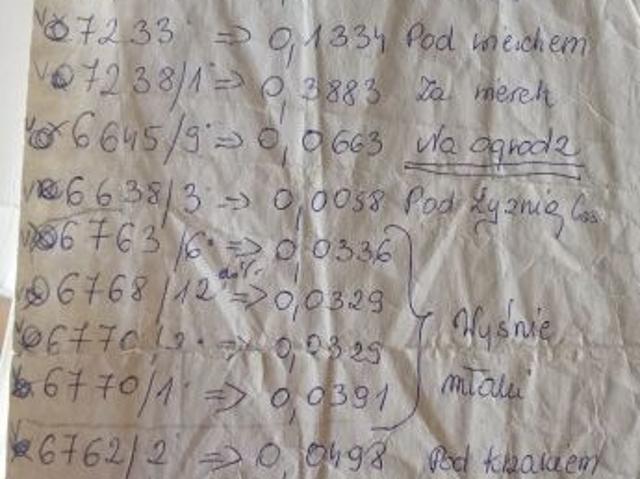 7233 => 0,1334 Pod wierchem
7238/1 => 0,3883 Za
6645/9 => 0,0663 Na ogrodz
6638/3 => 0,0058 Pod
6763/6 => 0,0336
6768/12 => 0,0329
6770/2 => 0,0329 Wyśnie
6770/1 => 0,0391 młaki
6762/2 => 0,0498 Pod krzakiem